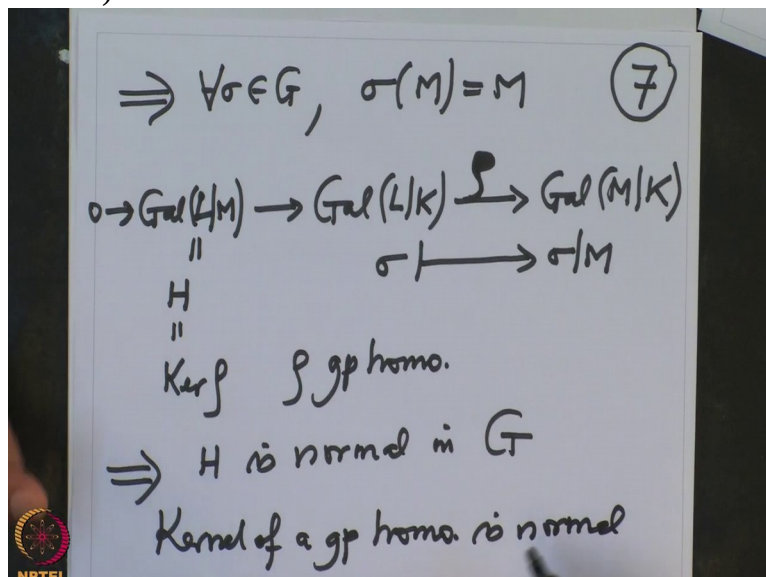 ⇒ ∀σ∈G, σ(M)=M ⑦
0→Gal(L|M) → Gal(L|K) —ρ→ Gal(M|K)
σ ↦ σ|M
=
H
=
Ker ρ ρ gp homo.
⇒ H is normal in G
Kernel of a gp homo. is normal
NPTEL